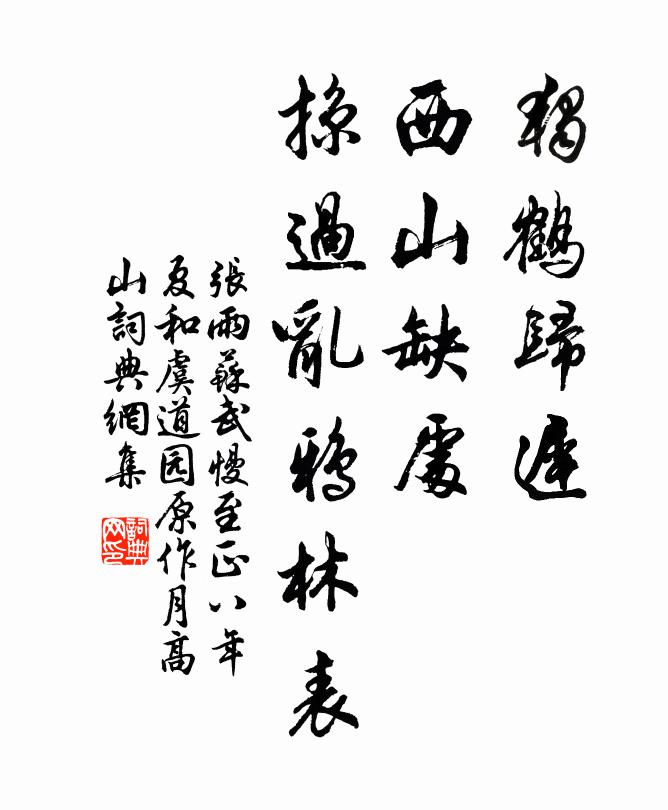 獨鶴歸遲
西山缺處
掠過亂鴉林表
張雨蘇武慢至正八年
夏和虞道园原作月高
山詞典網集
詞典
网印